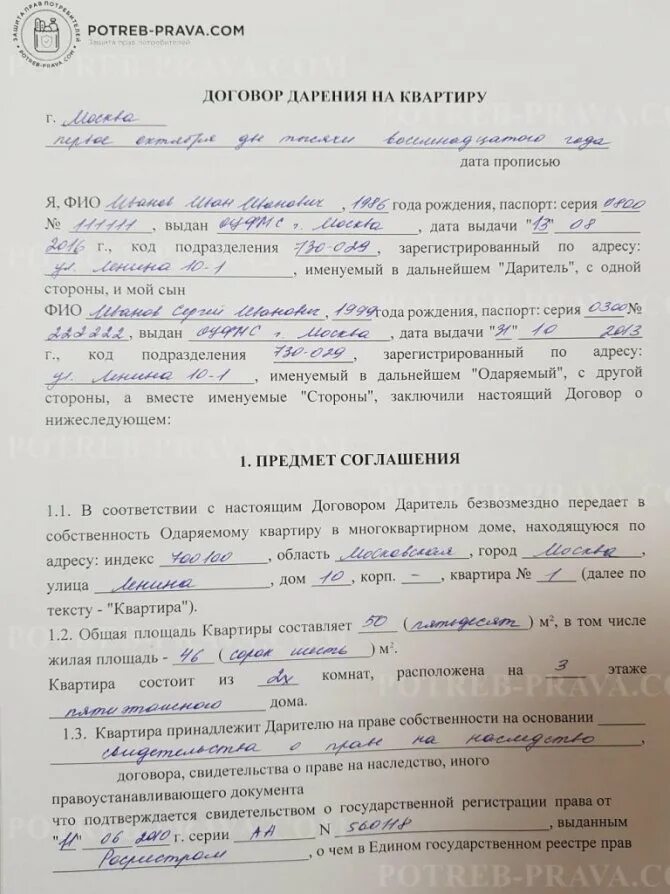 ЗАЩИТА ПРАВ ПОТРЕБИТЕЛЕЙ
POTREB-PRAVA.COM
POTREB-PRAVA.COM
Защита прав потребителей
ДОГОВОР ДАРЕНИЯ НА КВАРТИРУ
г. Москва
первое октября две тысячи восемнадцатого года
дата прописью
Я, ФИО Иванов Иван Иванович, 1986 года рождения, паспорт: серия 0800
№ 111111, выдан ОУФМС г. Москва, дата выдачи "13" 08
2016 г., код подразделения 730-029, зарегистрированный по адресу:
ул. Ленина 10-1, именуемый в дальнейшем "Даритель", с одной
стороны, и мой сын
ФИО Иванов Сергей Иванович, 1999 года рождения, паспорт: серия 0300 №
222222, выдан ОУФМС г. Москва, дата выдачи "31" 10 2013
г., код подразделения 730-029, зарегистрированный по адресу:
ул. Ленина 10-1, именуемый в дальнейшем "Одаряемый", с другой
стороны, а вместе именуемые "Стороны", заключили настоящий Договор о
нижеследующем:
1. ПРЕДМЕТ СОГЛАШЕНИЯ
1.1. В соответствии с настоящим Договором Даритель безвозмездно передает в
собственность Одаряемому квартиру в многоквартирном доме, находящуюся по
адресу: индекс 700100, область Московская, город Москва,
улица Ленина, дом 10, корп. –, квартира № 1 (далее по
тексту - "Квартира").
1.2. Общая площадь Квартиры составляет 50 (пятьдесят) м², в том числе
жилая площадь - 46 (сорок шесть) м².
Квартира состоит из 2х комнат, расположена на 3 этаже
пятиэтажного дома.
1.3. Квартира принадлежит Дарителю на праве собственности на основании
свидетельства о праве на наследство,
договора, свидетельства о праве на наследство, иного
правоустанавливающего документа
что подтверждается свидетельством о государственной регистрации права от
"11" 06 2010 г. серии АА N 560118, выданным
Росреестром, о чем в Едином государственном реестре прав